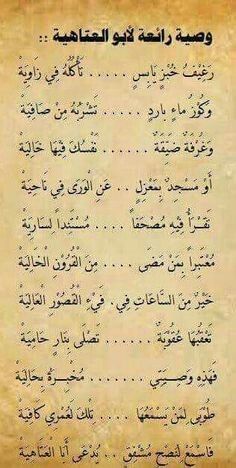 وصية رائعة لأبو العتاهية ::
رَغِيْفُ خُبْزٍ يَابِسٍ ..... تَأْكُلُهُ فِي زَاوِيَةْ
وَكُوْزُ مَاءٍ بَارِدٍ ..... تَشْرَبُهُ مِنْ صَافِيَةْ
وَغُرْفَةٌ ضَيِّقَةٌ ........ نَفْسُكَ فِيْهَا خَالِيَةْ
أَوْ مَسْجِدٌ بِمَعْزِلٍ .. عَنِ الْوَرَى فِي نَاحِيَةْ
تَقْرَأُ فِيْهِ مُصْحَفَاً .... مُسْتَنِداً لِسَارِيَةْ
مُعْتَبِراً بِمَنْ مَضَى .... مِنَ الْقُرُوْنِ الْخَالِيَةْ
خَيْرٌ مِنَ السَّاعَاتِ فِي. فَيْءِ الْقُصُوْرِ الْعَالِيَةْ
تَعْقُبُهَا عُقُوْبَةٌ ..... تَصْلَى بِنَارٍ حَامِيَةْ
فَهَذِهِ وَصِيَّتِي ........ مُخْبِرَةٌ بِحَالِيَةْ
طُوْبَى لِمَنْ يَسْمَعُهَا .... تِلْكَ لَعَمْرِي كَافِيَةْ
فَاسْمَعْ لِنُصْحِ مُشْفِقٍ .. يُدْعَى أَبَا الْعَتَاهِيَةْ